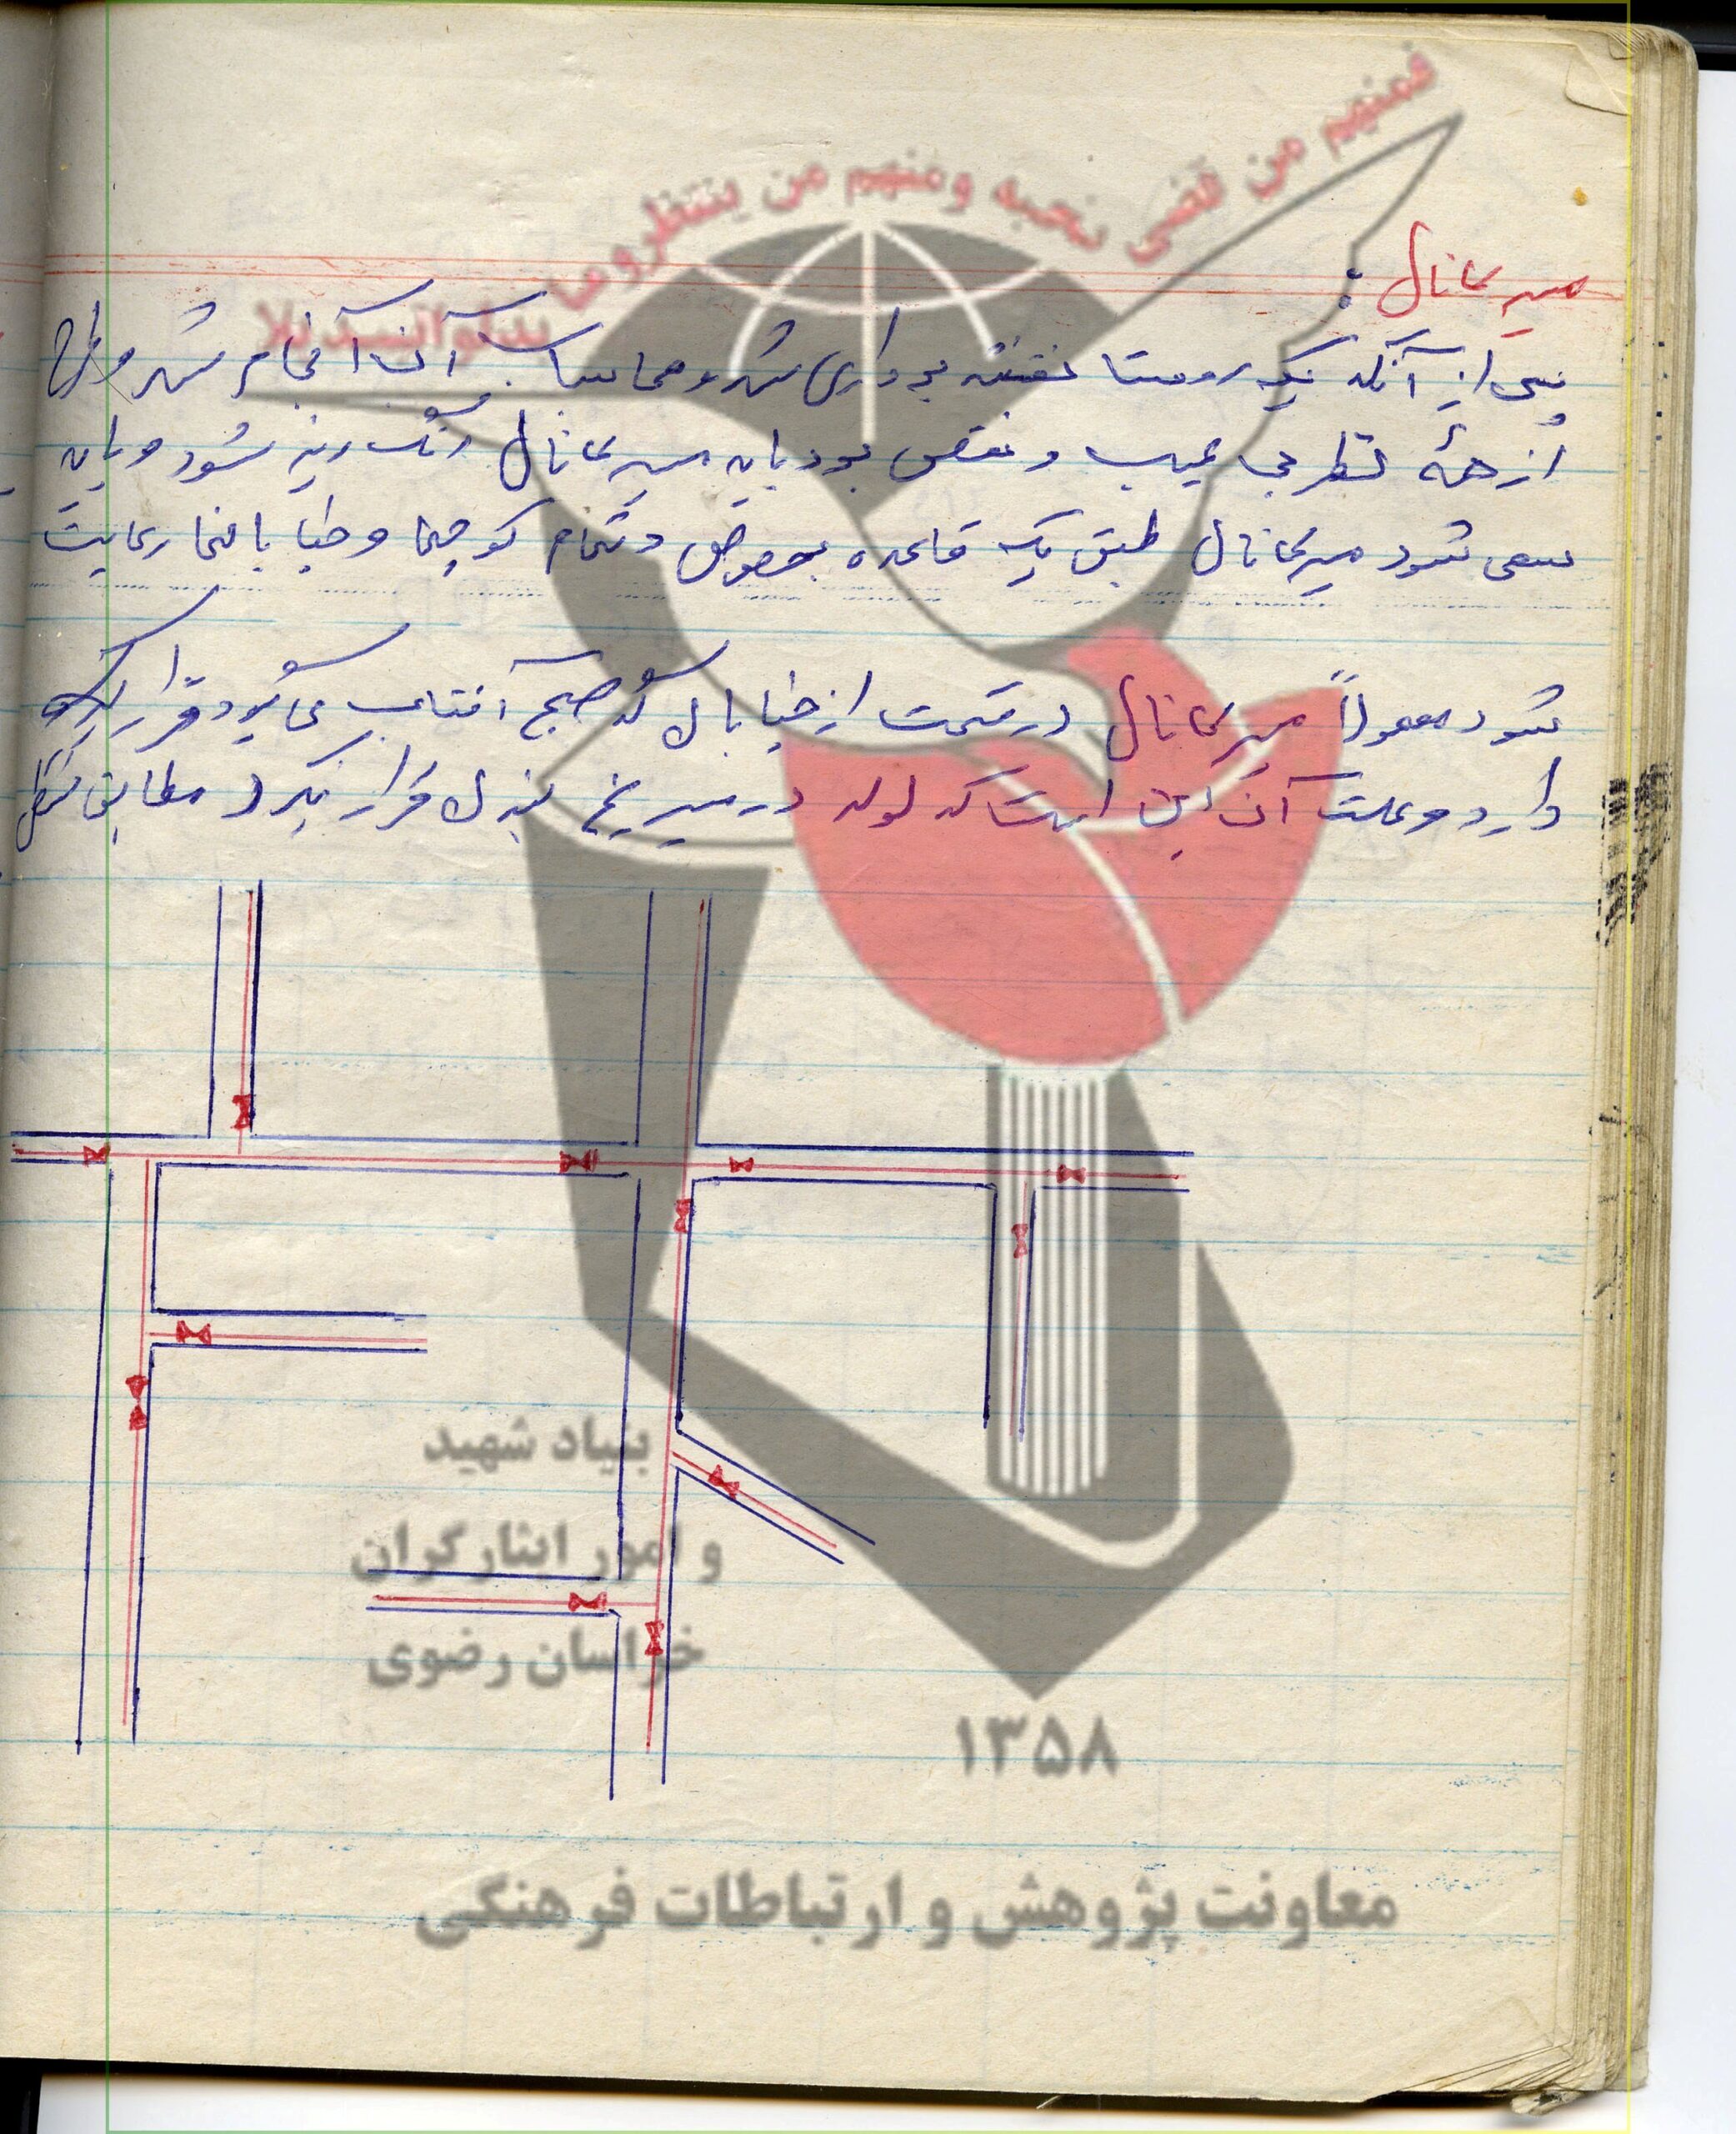 فمنهم من قضی نحبه ومنهم من ینتظر وما بدلوا تبدیلا
مسیر کانال :
پس از آنکه یک روستا نقشه برداری شد و محاسبات آن انجام شد و طرح
از همهٔ نظر بی عیب و نقص بود باید مسیر کانال رنگ ریزی شود و باید
سعی شود مسیر کانال طبق یک قاعده بخصوص و تمام کوچه‌ها و خیابانها رعایت
شود معمولاً مسیر کانال در قسمت از خیابان که صبح آفتاب می‌گیرد قرار
دارد و علت آن این است که لوله در مسیر یخ بندان قرار نگیرد مطابق شکل
بنیاد شهید
و امور ایثارگران
خراسان رضوی
۱۳۵۸
معاونت پژوهش و ارتباطات فرهنگی